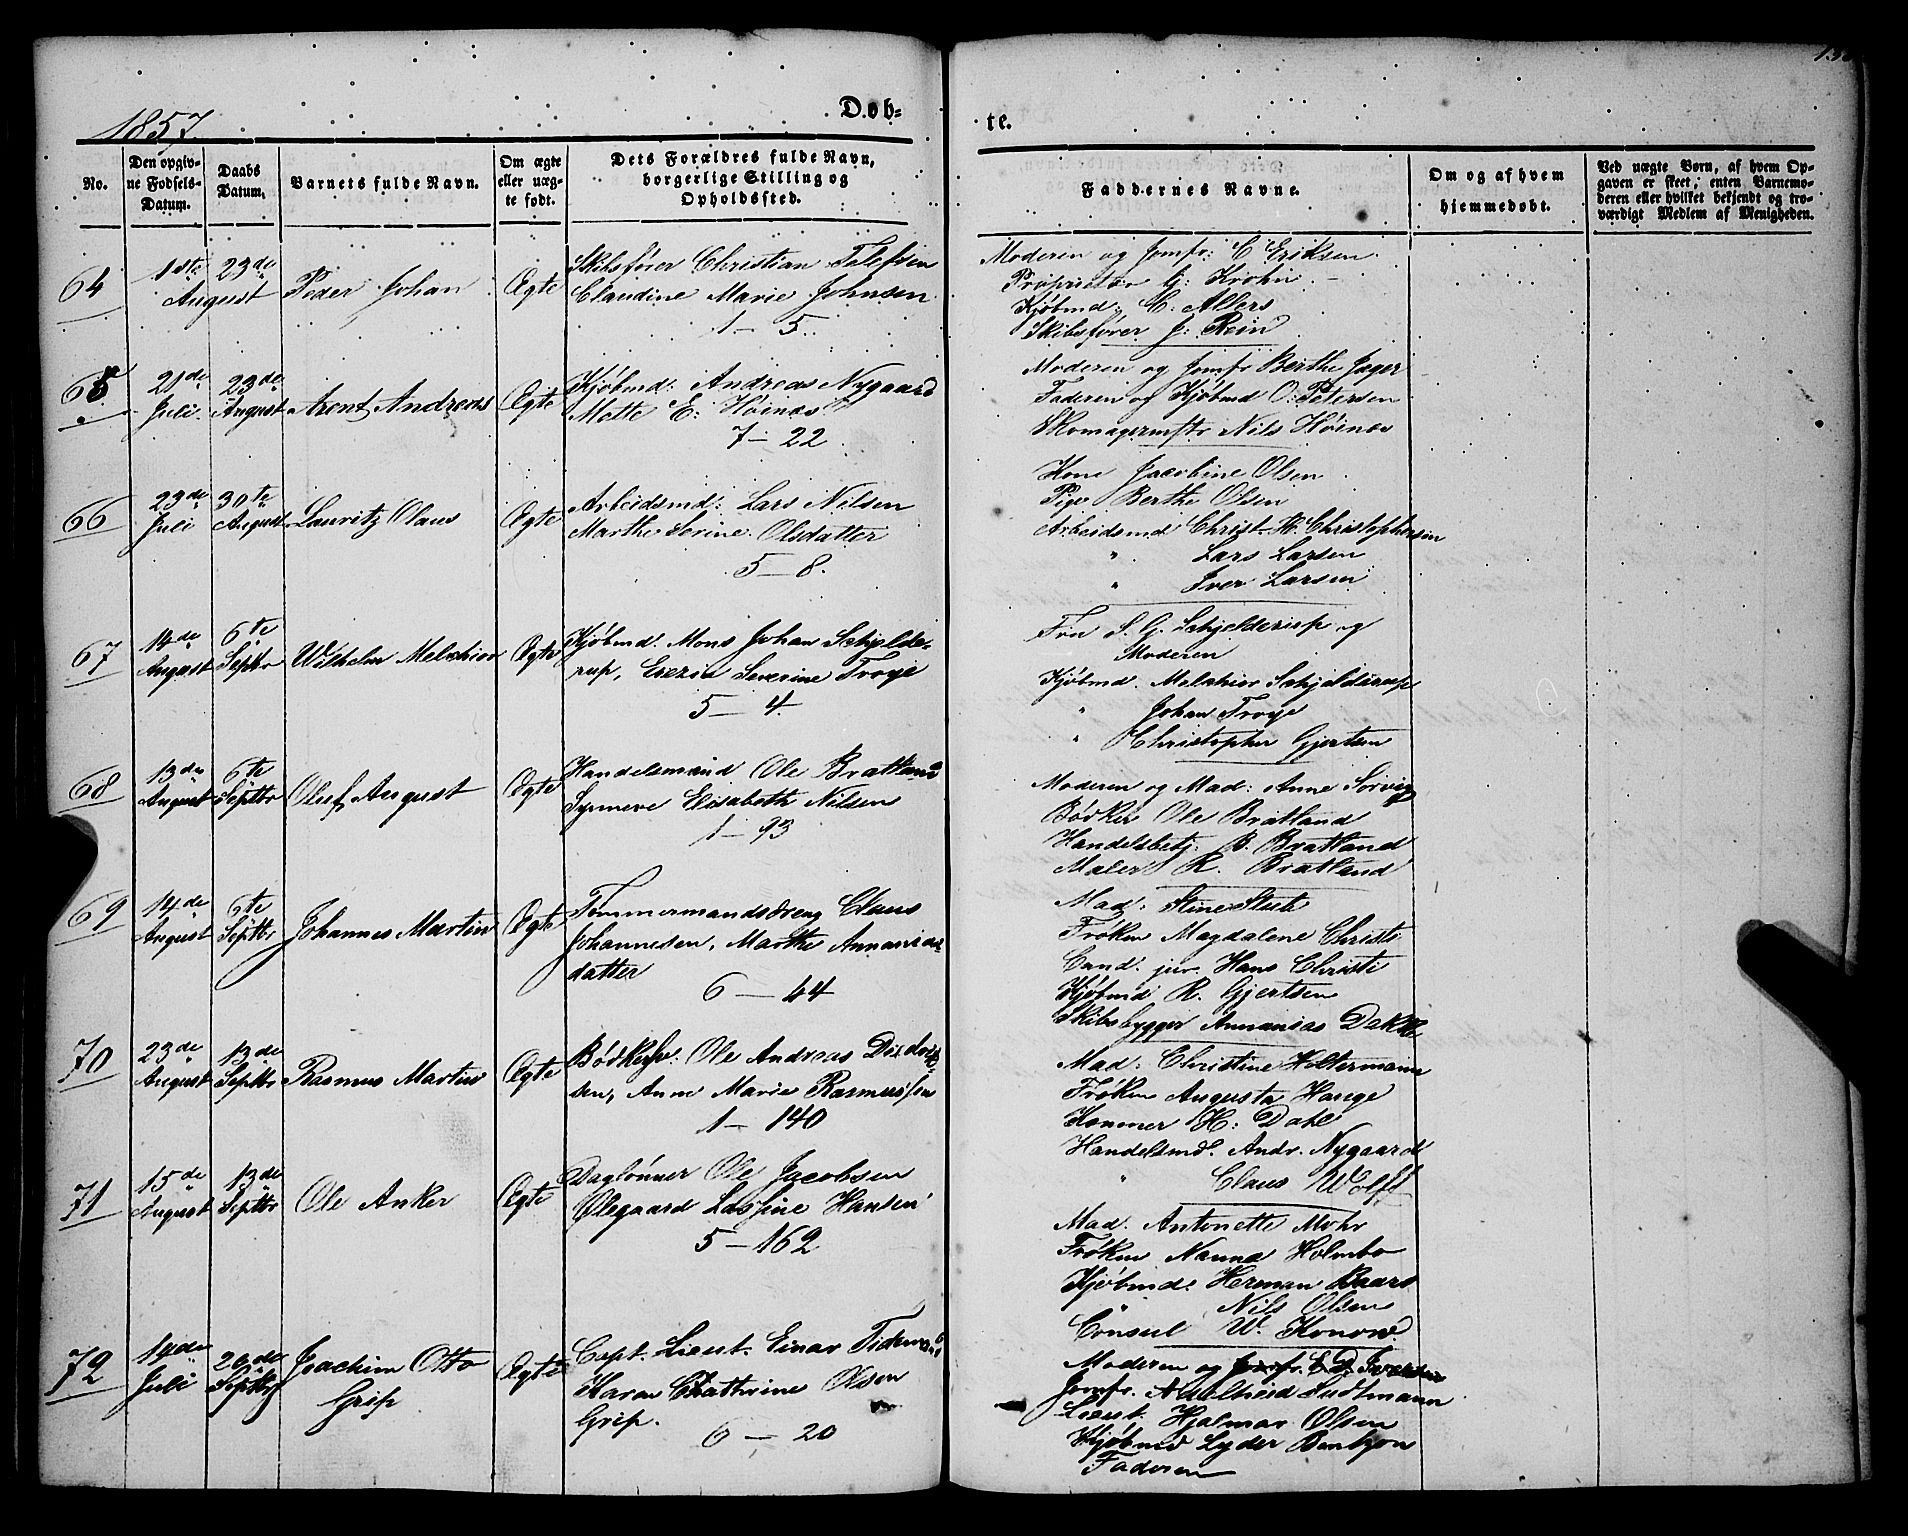 1857
Døb=
te.
No.
Den opgiv-
ne Fødsels-
Datum.
Daabs
Datum.
Barnets fulde Navn.
Om ægte
eller uæg-
te født.
Dets Forældres fulde Navn,
borgerlige Stilling og
Opholdssted.
Faddernes Navne.
Om og af hvem
hjemmedøbt.
Ved uægte Børn, af hvem Op-
gaven er skeet, enten Barnemo-
deren eller hvilket bekjendt og tro-
værdigt Medlem af Menigheden.
64
1ste
August
23de
Peder Johan
Ægte
Skibsfører Christian Tellefsen
Claudine Marie Johnsen
1 - 5.
Moderen og Jomfr: C Eriksen
Proprietær G: Krohn
Kjøbmd: C. Allers
Skibsfører J: Rein
65
21de
Juli
23de
August
Arent Andreas
Ægte
Kjøbmd: Andreas Nygaard
Mette E: Høinæs
7 - 22
Moderen og Jomfr Berthe Jager
Faderen og Kjøbmd O: Petersen
Skomagermstr Nils Høinæs
66
23de
Juli
30te
August
Lauritz Olaus
Ægte
Arbeidsmd: Lars Nilsen
Marthe Serine Olsdatter
5 - 8.
Kone Jacobine Olsen
Pige Berthe Olsen
Arbeidsmd Christ. H. Christophersen
" Lars Larsen
" Iver Larsen
67
14de
August
6te
Septbr
Wilhelm Melchior
Ægte
Kjøbmd. Mons Johan Schjelde-
rup, Severine Troye
5 - 4.
Fru S. G. Schjelderup og
Moderen
Kjøbmd. Melchior Schjelderup
" Johan Troye
" Christopher Gjertsen
68
13de
August
6te
Septbr
Oluf August
Ægte
Handelsmand Ole Bratland
Synneve Elisabeth Nilsen
1 - 93
Moderen og Mad: Anne Sørvig
Bødker Ole Bratland
Handelsbetj. B. Bratland
Maler R. Bratland
69
14de
August
6te
Septbr
Johannes Martin
Ægte
Tømmermandsdreng Claus
Johannesen, Marthe Annanias-
datter
6 - 44
Mad: Stine Stub
Frøken Magdalene Christi
Cand. jur. Hans Christi
Kjøbmd R. Gjertsen
Skibsbygger Annanias Dekke
70
23de
August
13de
Septbr
Rasmus Martin
Ægte
Ole Andreas Didrik-
sen, Anne Marie Rasmussen
1 - 140
Mad: Christine Holtermann
Frøken Augusta Hauge
Kæmner H: Dahl
Handelsmd. Andr. Nygaard
" Claus Wolff
71
15de
August
13de
Septbr
Ole Anker
Ægte
Dagløner Ole Jacobsen
Olegaard Hansen
5 - 162
Mad. Antonette Mohr
Frøken Nanna Holmbo
Kjøbmd. Herman Baars
" Nils Olsen
Consul W. Konow
72
14de
Juli
20de
Septbr
Joachim Otto
Grip
Ægte
Capt. Lieut. Einar
Karen Cathrine Olsen
Grip.
6 - 20
Moderen og
Jomfr. Ludtmann
Lieut. Hjalmar Olsen
Kjøbmd Lyder Bentzon
Faderen